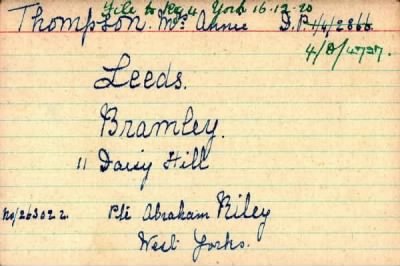 File to Reg 4 York 16.12.20
Thompson. Mrs Annie D.P. 1/4/2866
4/D/4727.
Leeds.
Bramley.
11 Daisy Hill
No/263022 Pte Abraham Riley
West Yorks.